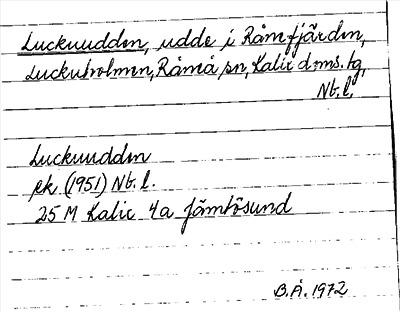 Luckuudden, udde i Rånefjärden,
Luckuholmen, Råneå sn, Kalix doms. tg,
Nb. l.
Luckuudden
ek. (1951) Nb. l.
25 M Kalix 4a Jämtösund
B.Å. 1972